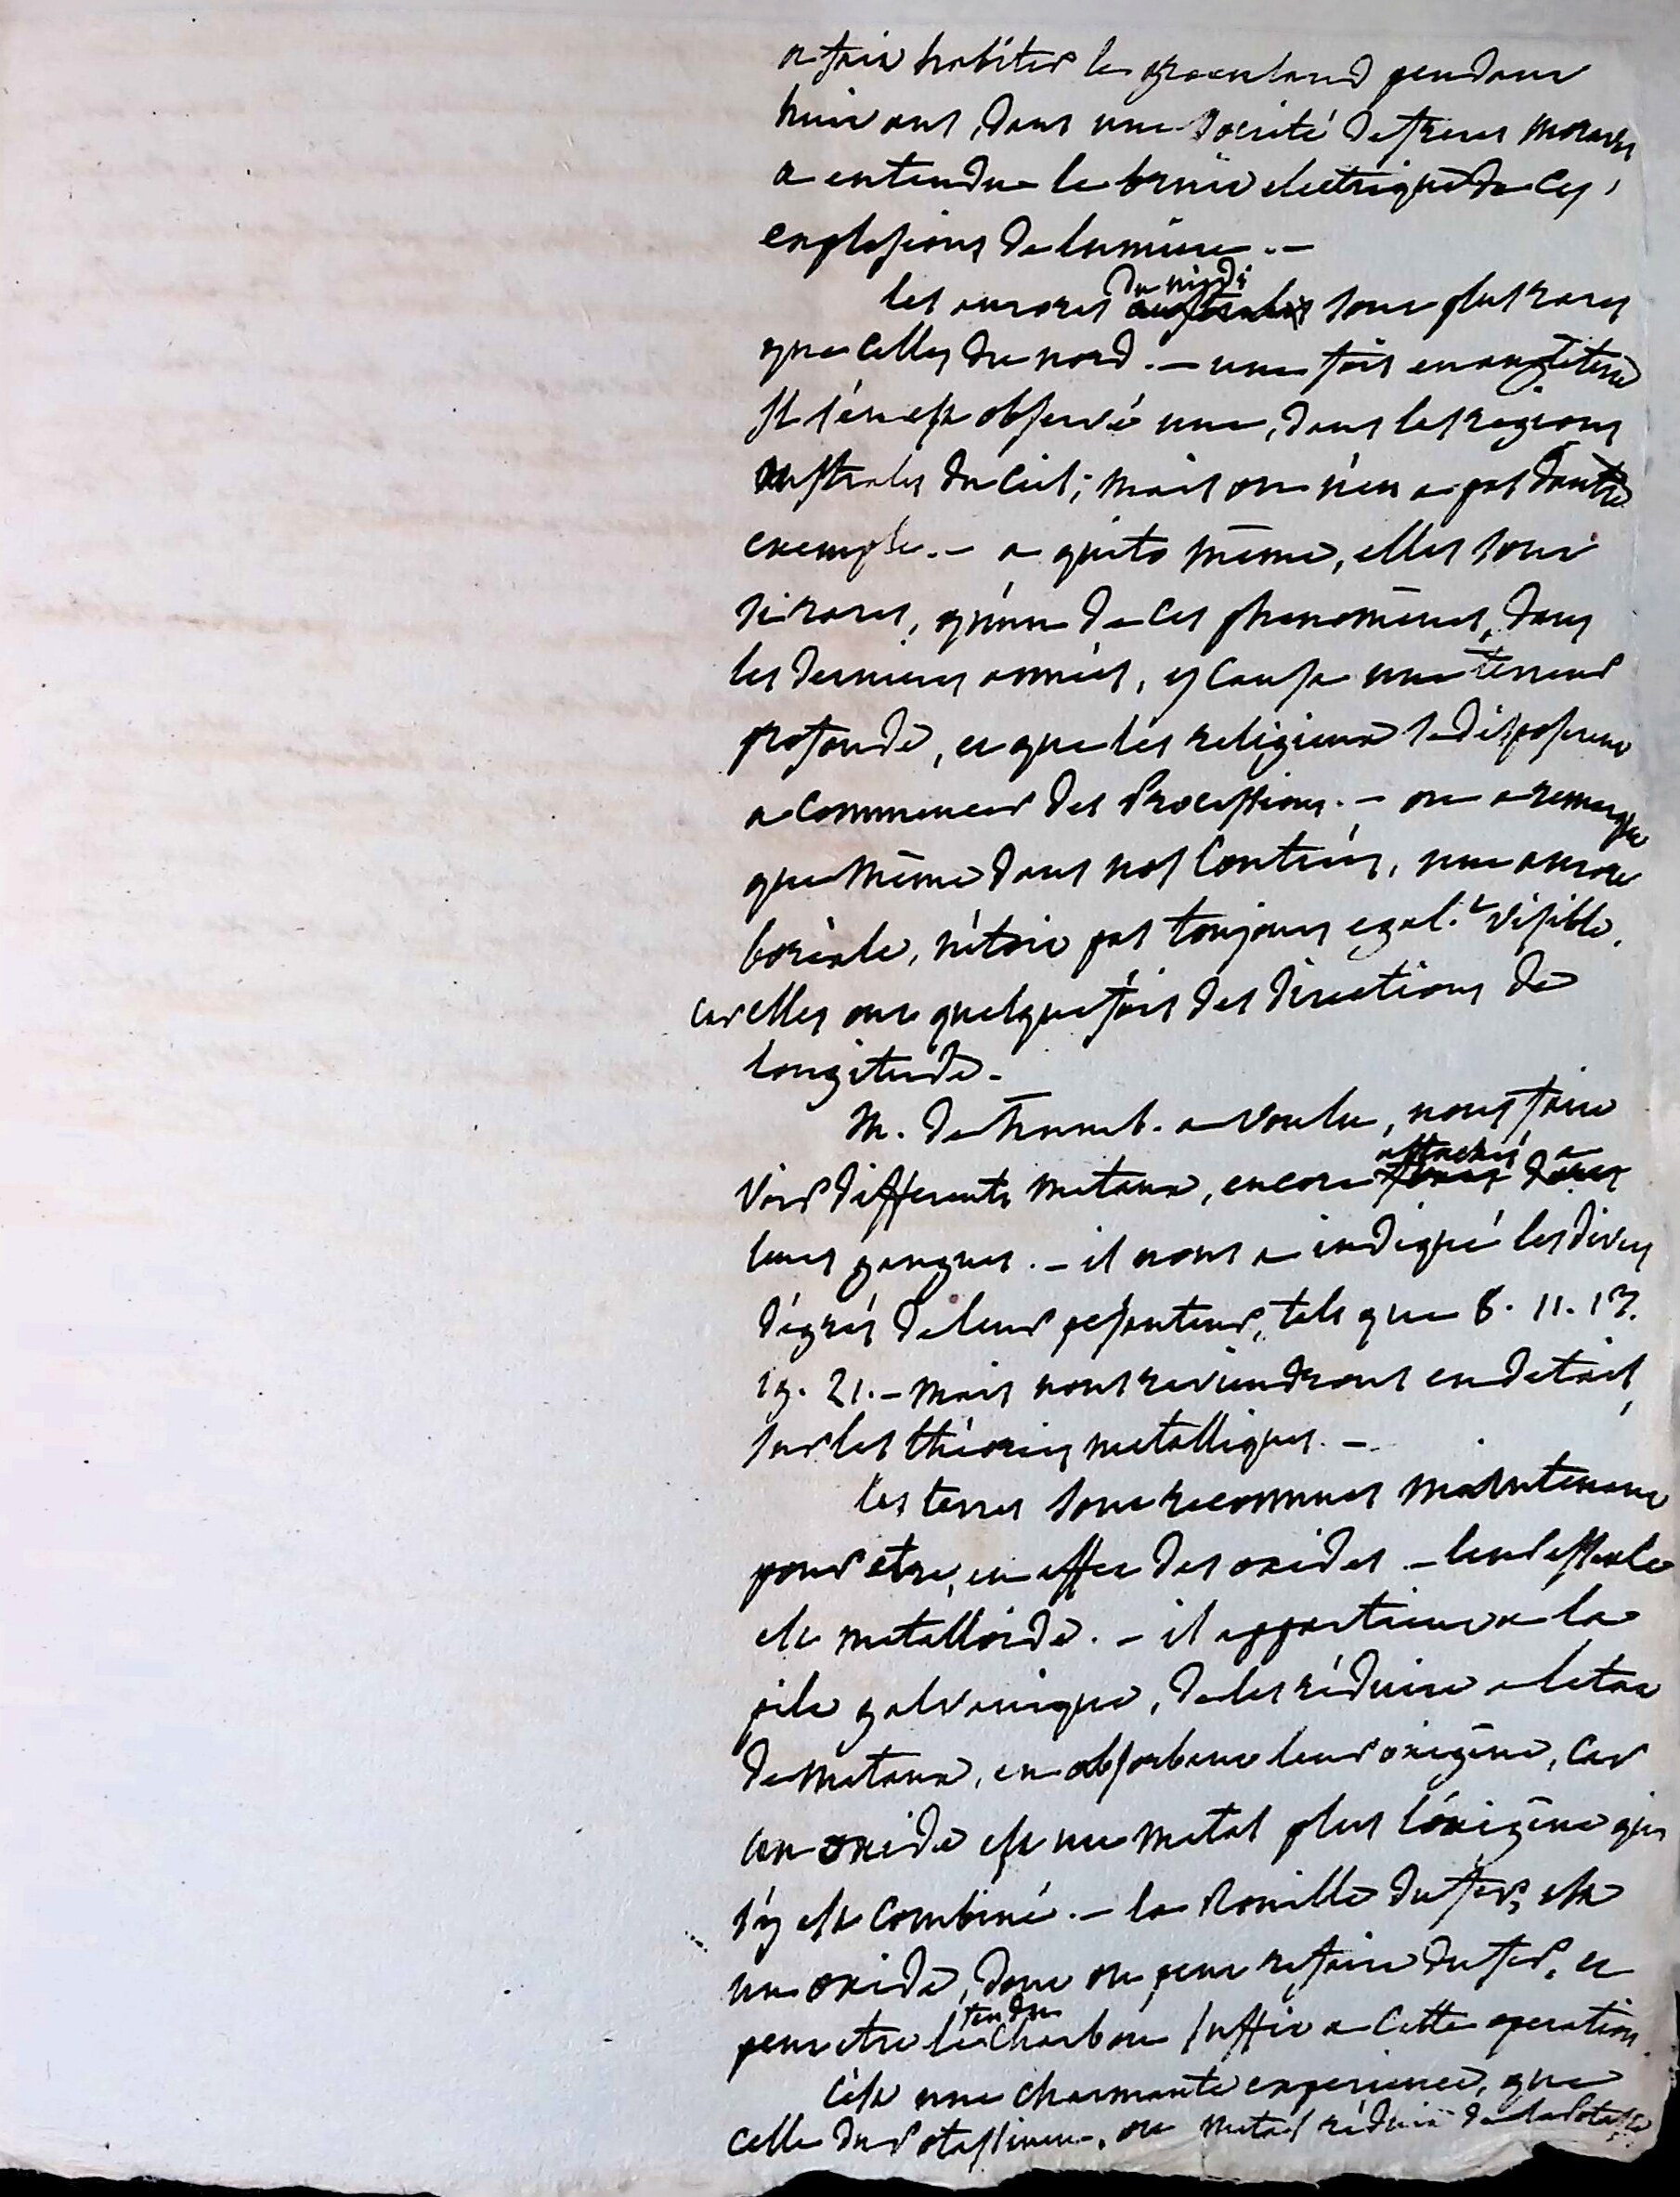 a fait habiter le groenland pendant
huit ans, dans une société de freres moraves
a entendu le bruit electrique de ces
explosions de lumiere. —
les aurores du midi sont plus rares
que celles du nord. — une fois en angleterre
Il s'en est observé une, dans les regions
australes du ciel; mais on n'en a pas d'autre
exemple. — a quito même, elles sont
si rares, qu'un de ces phenomènes, dans
les dernieres années, y causa une terreur
profonde, et que les religieux se disposerent
a commencer des Processions. — on a remarqué
que même dans nos contrées, une aurore
boréale, n'étoit pas toujours egal.t visible,
car elles ont quelquefois des directions de
longitude. —
M. de humb. a voulu, nous faire
voir differents metaux, encore attachés a
leurs gangues. — il nous a indiqué les divers
dégrés de leur pesanteur, tels que 8. 11. 13.
19. 21. — mais nous reviendrons en detail,
sur les théories metalliques. —
les terres sont reconnues maintenant
pour etre, en effet des oxides —
est metalloide. — il appartient a la
pile galvanique, de les réduire a letat
de metaux, en absorbant leur oxigène, car
un oxide est un metal plus l'oxigène qui
s'y est combiné. — la Rouille du fer, est
un oxide, dont on peut refaire du fer, et
peut etre le tendre charbon suffit a cette operation.
C'est une charmante experience, que
celle du Potassium, ou metal réduit de la Potasse